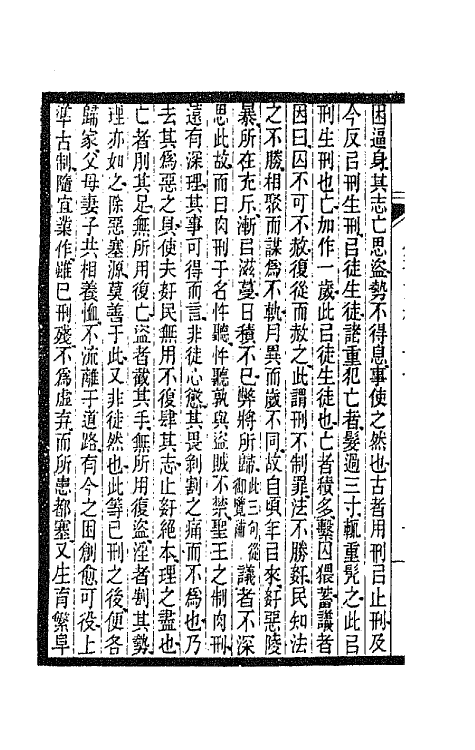 困逼身其志亡思盜勢不得息事使之然也古者用刑㠯止刑及
今反㠯刑生刑㠯徒生徒諸重犯亡者髮過三寸輒重髡之此㠯
刑生刑也亡加作一歲此㠯徒生徒也亡者積多繫囚猥蓄議者
因曰囚不可不赦復從而赦之此謂刑不制罪法不勝姦民知法
之不勝相聚而謀爲不軌月異而歲不同故自頃年㠯來奸惡陵
暴所在充斥漸㠯滋蔓日積不已弊將所歸此三句從御覽補議者不深
思此故而曰肉刑于名忤聽忤聽孰與盜賊不禁聖王之制肉刑
遠有深理其事可得而言非徒心懲其畏剝割之痛而不爲也乃
去其爲惡之具使夫奸民無用不復肆其志止奸絕本理之盡也
亡者刖其足無所用復亡盜者截其手無所用復盜淫者割其勢
理亦如之除惡塞源莫善于此又非徒然也此等已刑之後便各
歸家父母妻子共相養恤不流離于道路有今之困創愈可役上
準古制隨宜業作雖巳刑殘不爲虛弃而所患都塞又生育繁阜